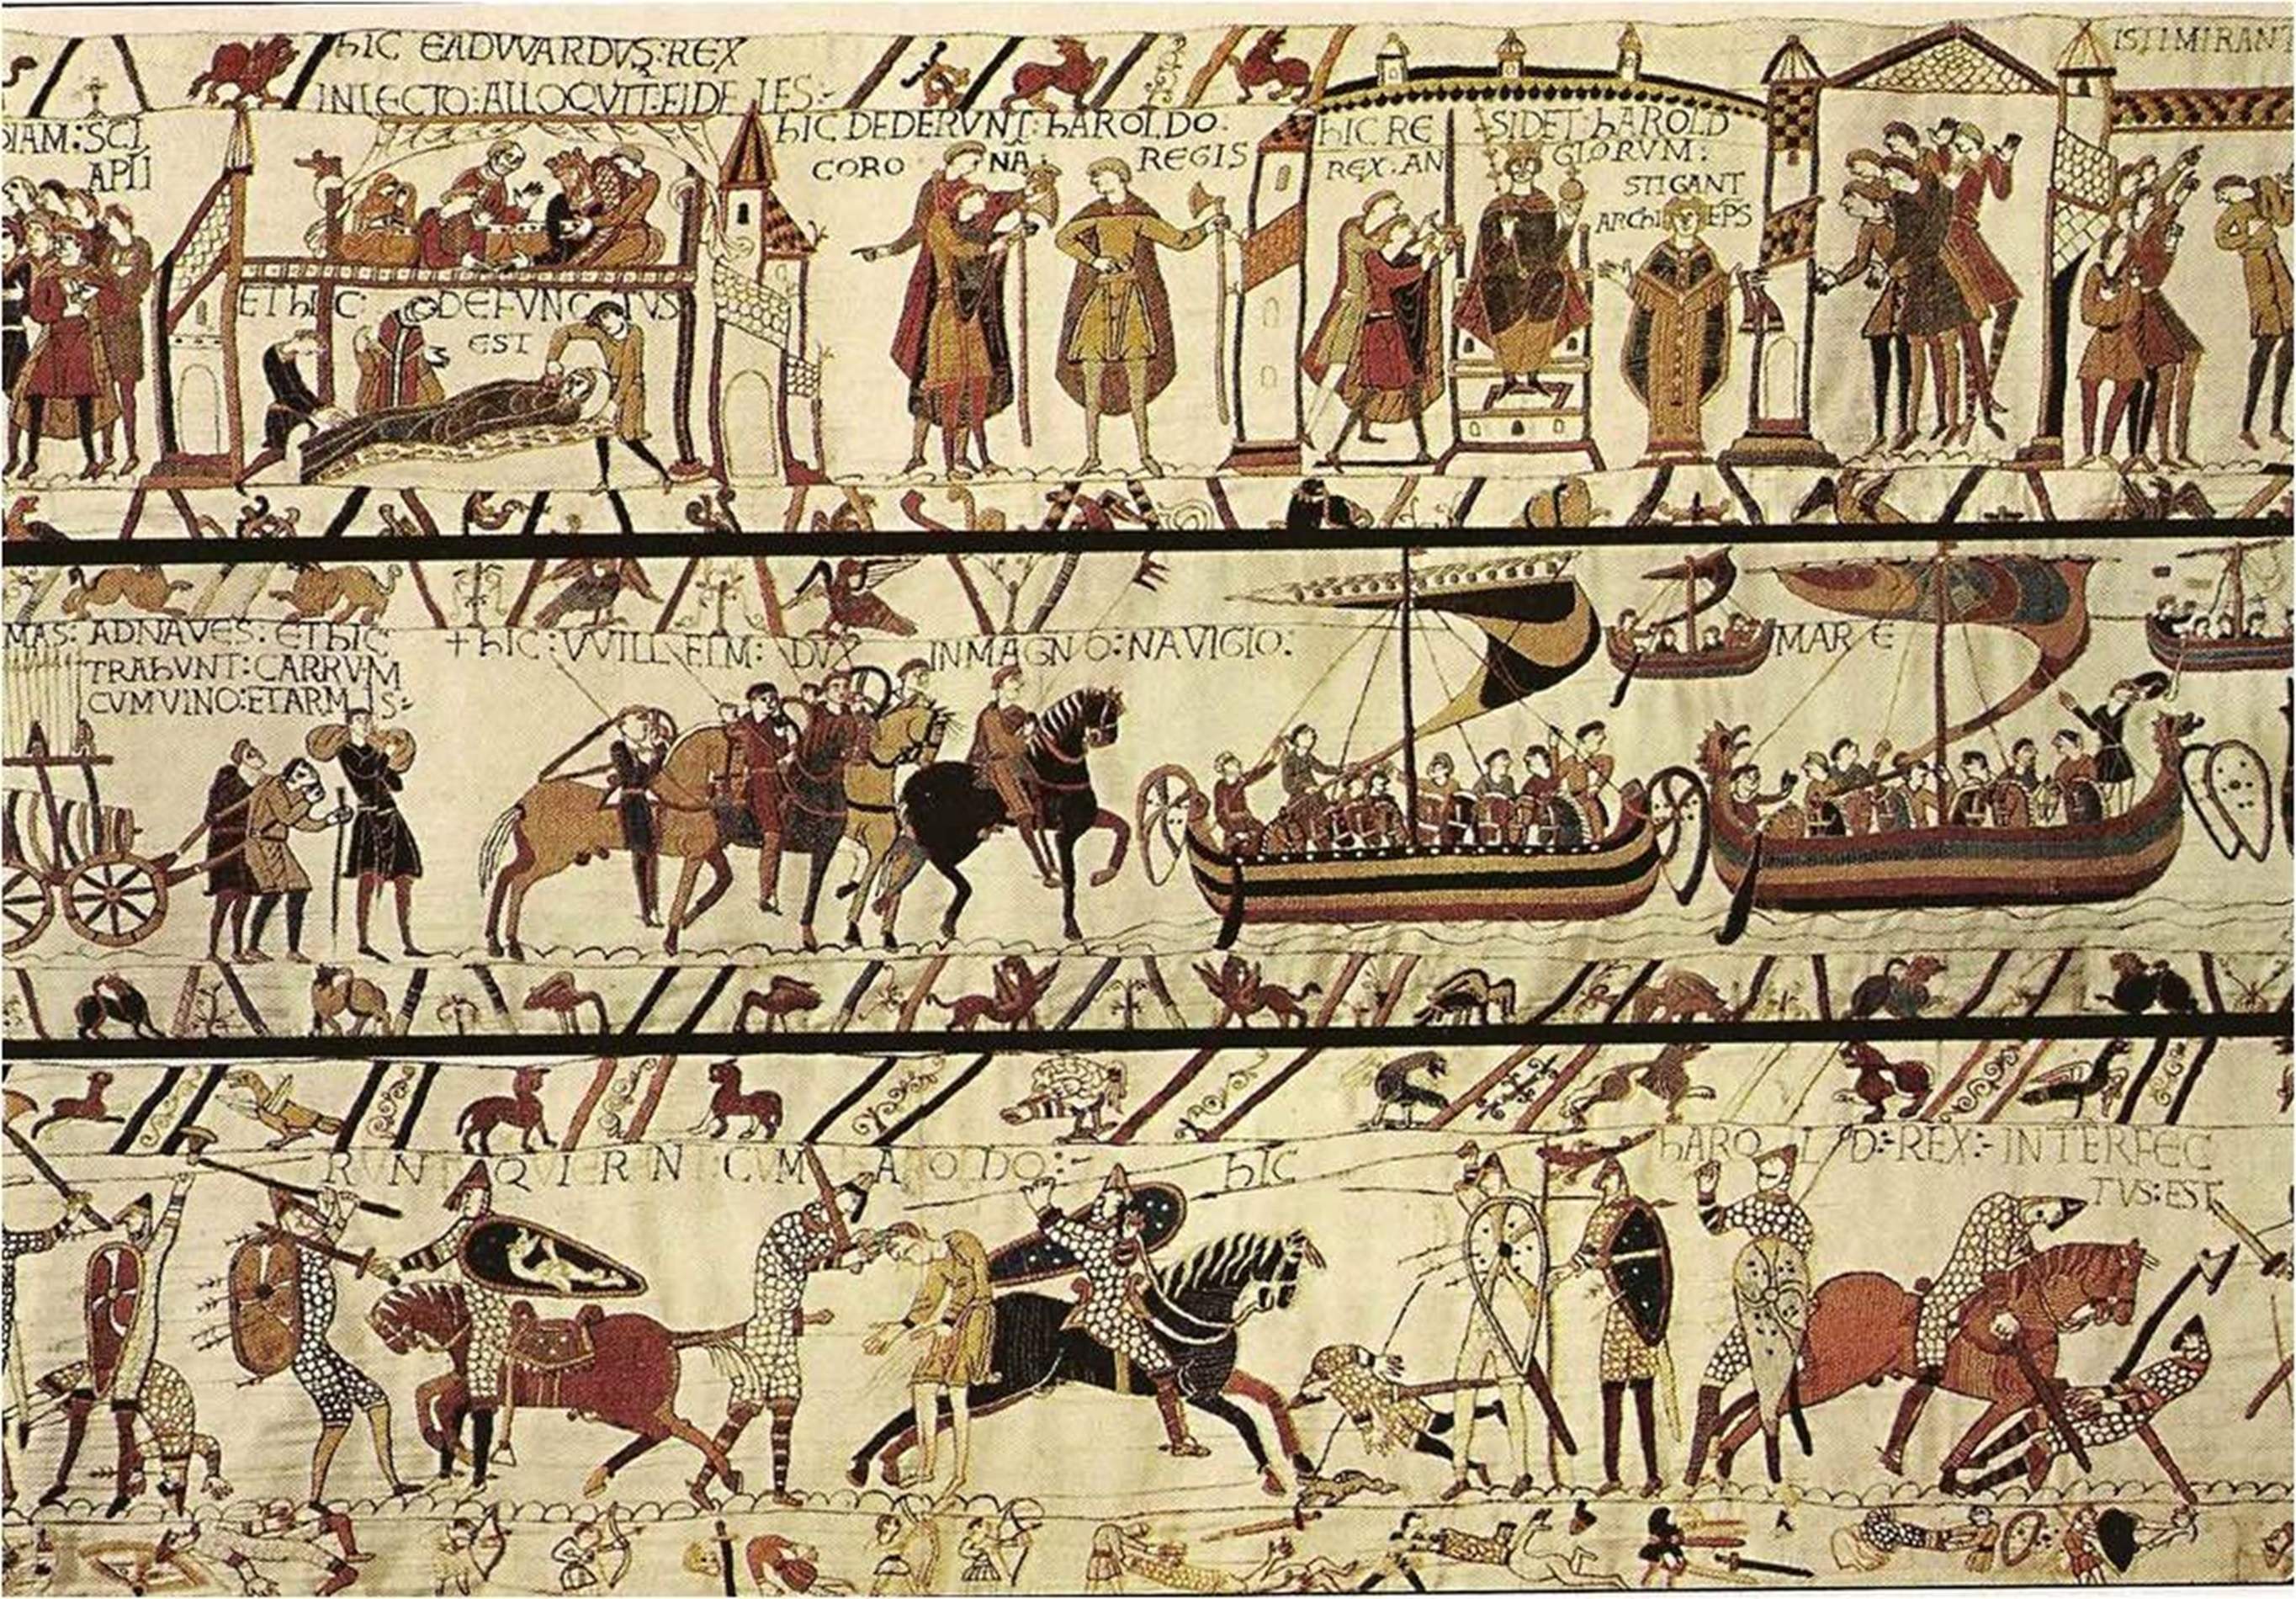 HIC EADVVARDVS:REX
INLECTO:ALLOQVIT:FIDELES:
DIAM:SCI
APLI
ET HIC DEFVNCTVS
EST
HIC DEDERVNT:HAROLDO:
CORONA REGIS
HIC RESIDET:HAROLD
REX:ANGLORVM:
STIGANT
ARCHIEPS
ISTIMIRANT
MAS: ADNAVES: ETHIC
TRAHVNT:CARRVM
CVMVINO:ETARMIS:
+HIC:VVILLELM: DVX INMAGNO:NAVIGIO: MARE
RVNT QVI ERANT CVM HAROLDO:-
HIC HAROLD:-REX:-INTERFEC
TVS:EST